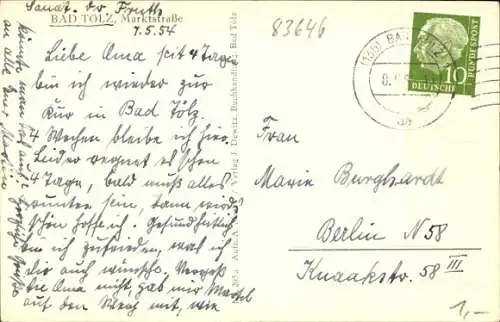 Sanat. Dr Fruth
BAD TÖLZ, Marktstraße
7.5.54
Liebe Oma seit 4 Tage
bin ich wieder zur
Kur in Bad Tölz.
4 Wochen bleibe ich hier
Leider regnet es schon
4 Tage, bald muß alles
runter sein, dann wird's
schön hoffe ich. Gesundheitlich
bin ich zufrieden, was ich
dir auch wünsche. Vergeß
die Oma nicht, gab mir
auf den Weg mit, wie
könnte man auch!
Grüße
an alle
Verlag J. Dewitz, Buchhandlung, Bad Tölz
83646
BAD TÖLZ
10
DEUTSCHE BUNDESPOST
Frau
Marie Burghardt
Berlin N 58
Knaakstr. 58 III
1,-